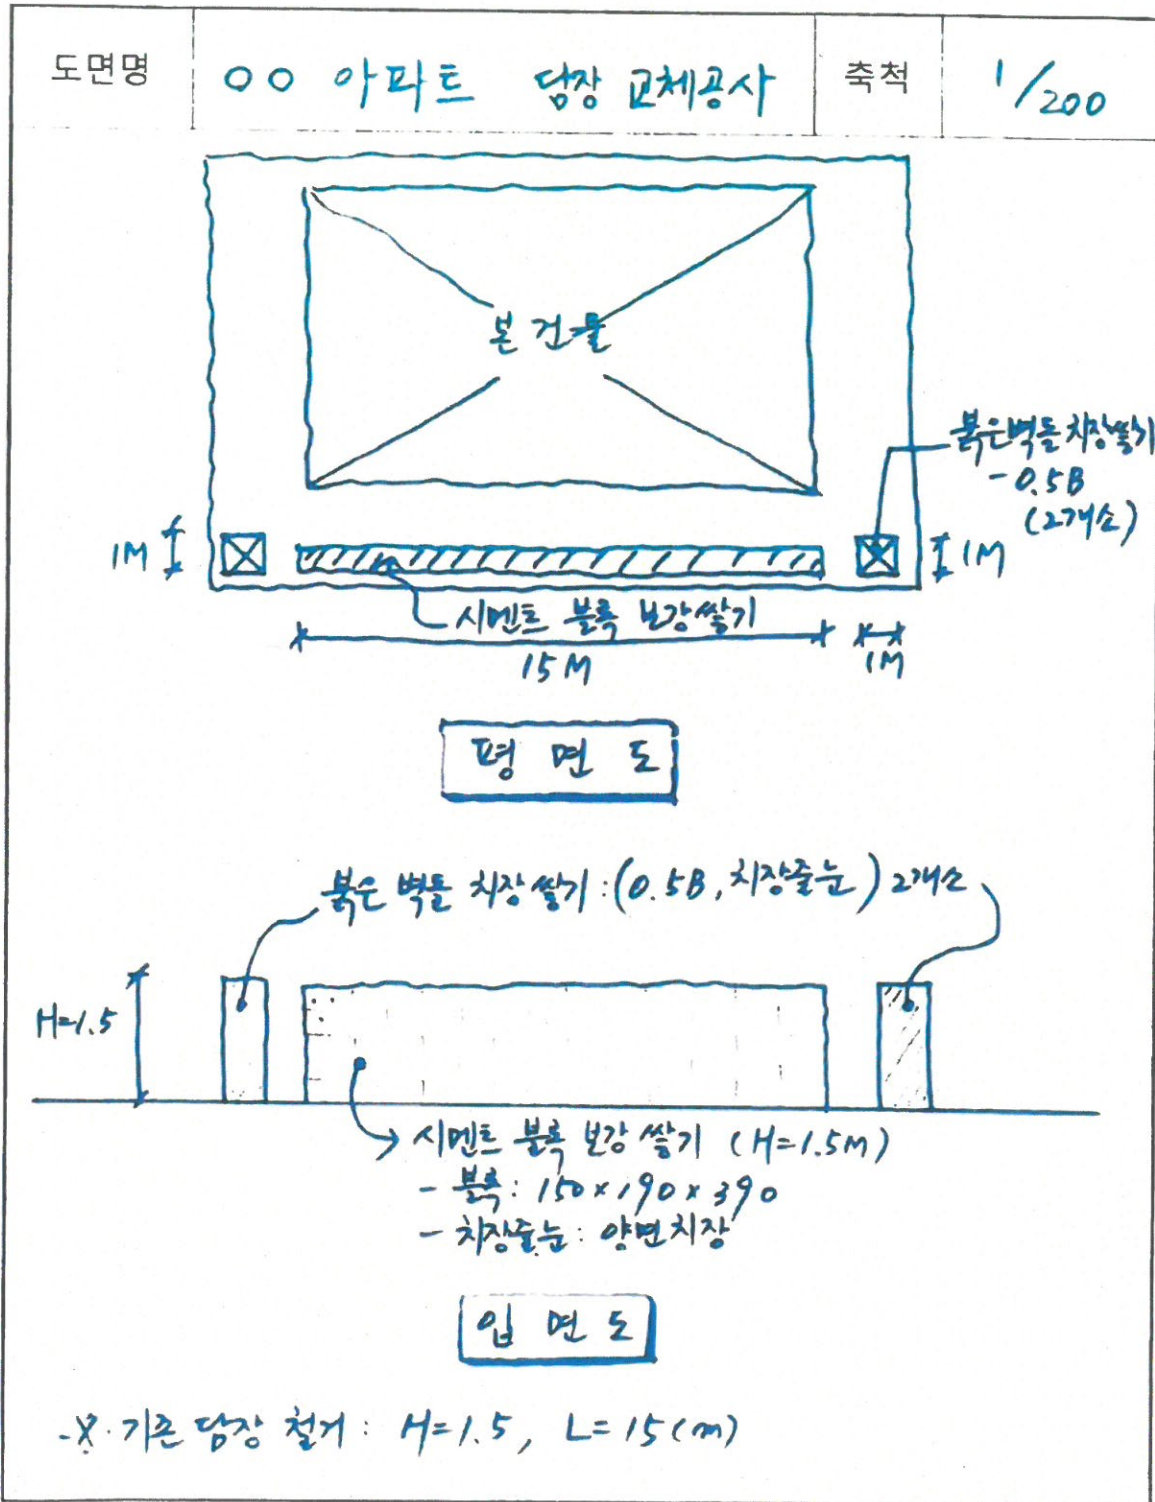 도면명 ○○ 아파트 담장 교체공사 축척 1/200
본건물
붉은벽돌 치장쌓기
- 0.5B
(2개소)
1M
1M
시멘트 블록 보강쌓기
15M
1M
평면도
붉은 벽돌 치장쌓기 : (0.5B, 치장줄눈) 2개소
H=1.5
시멘트 블록 보강 쌓기 (H=1.5M)
- 블록 : 150×190×390
- 치장줄눈 : 양면치장
입면도
※. 기존 담장 철거 : H=1.5, L=15(m)